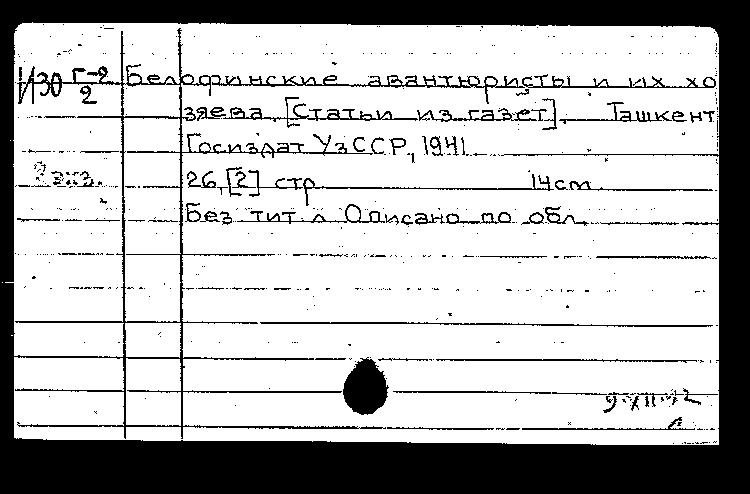 И30 г-2/2 Белофинские авантюристы и их хо
зяева. [Статьи из газет]. Ташкент
Госиздат УзССР, 1941.
2 экз. 26, [2] стр. 14см.
Без тит. л. Описано по обл.
9.XII.42